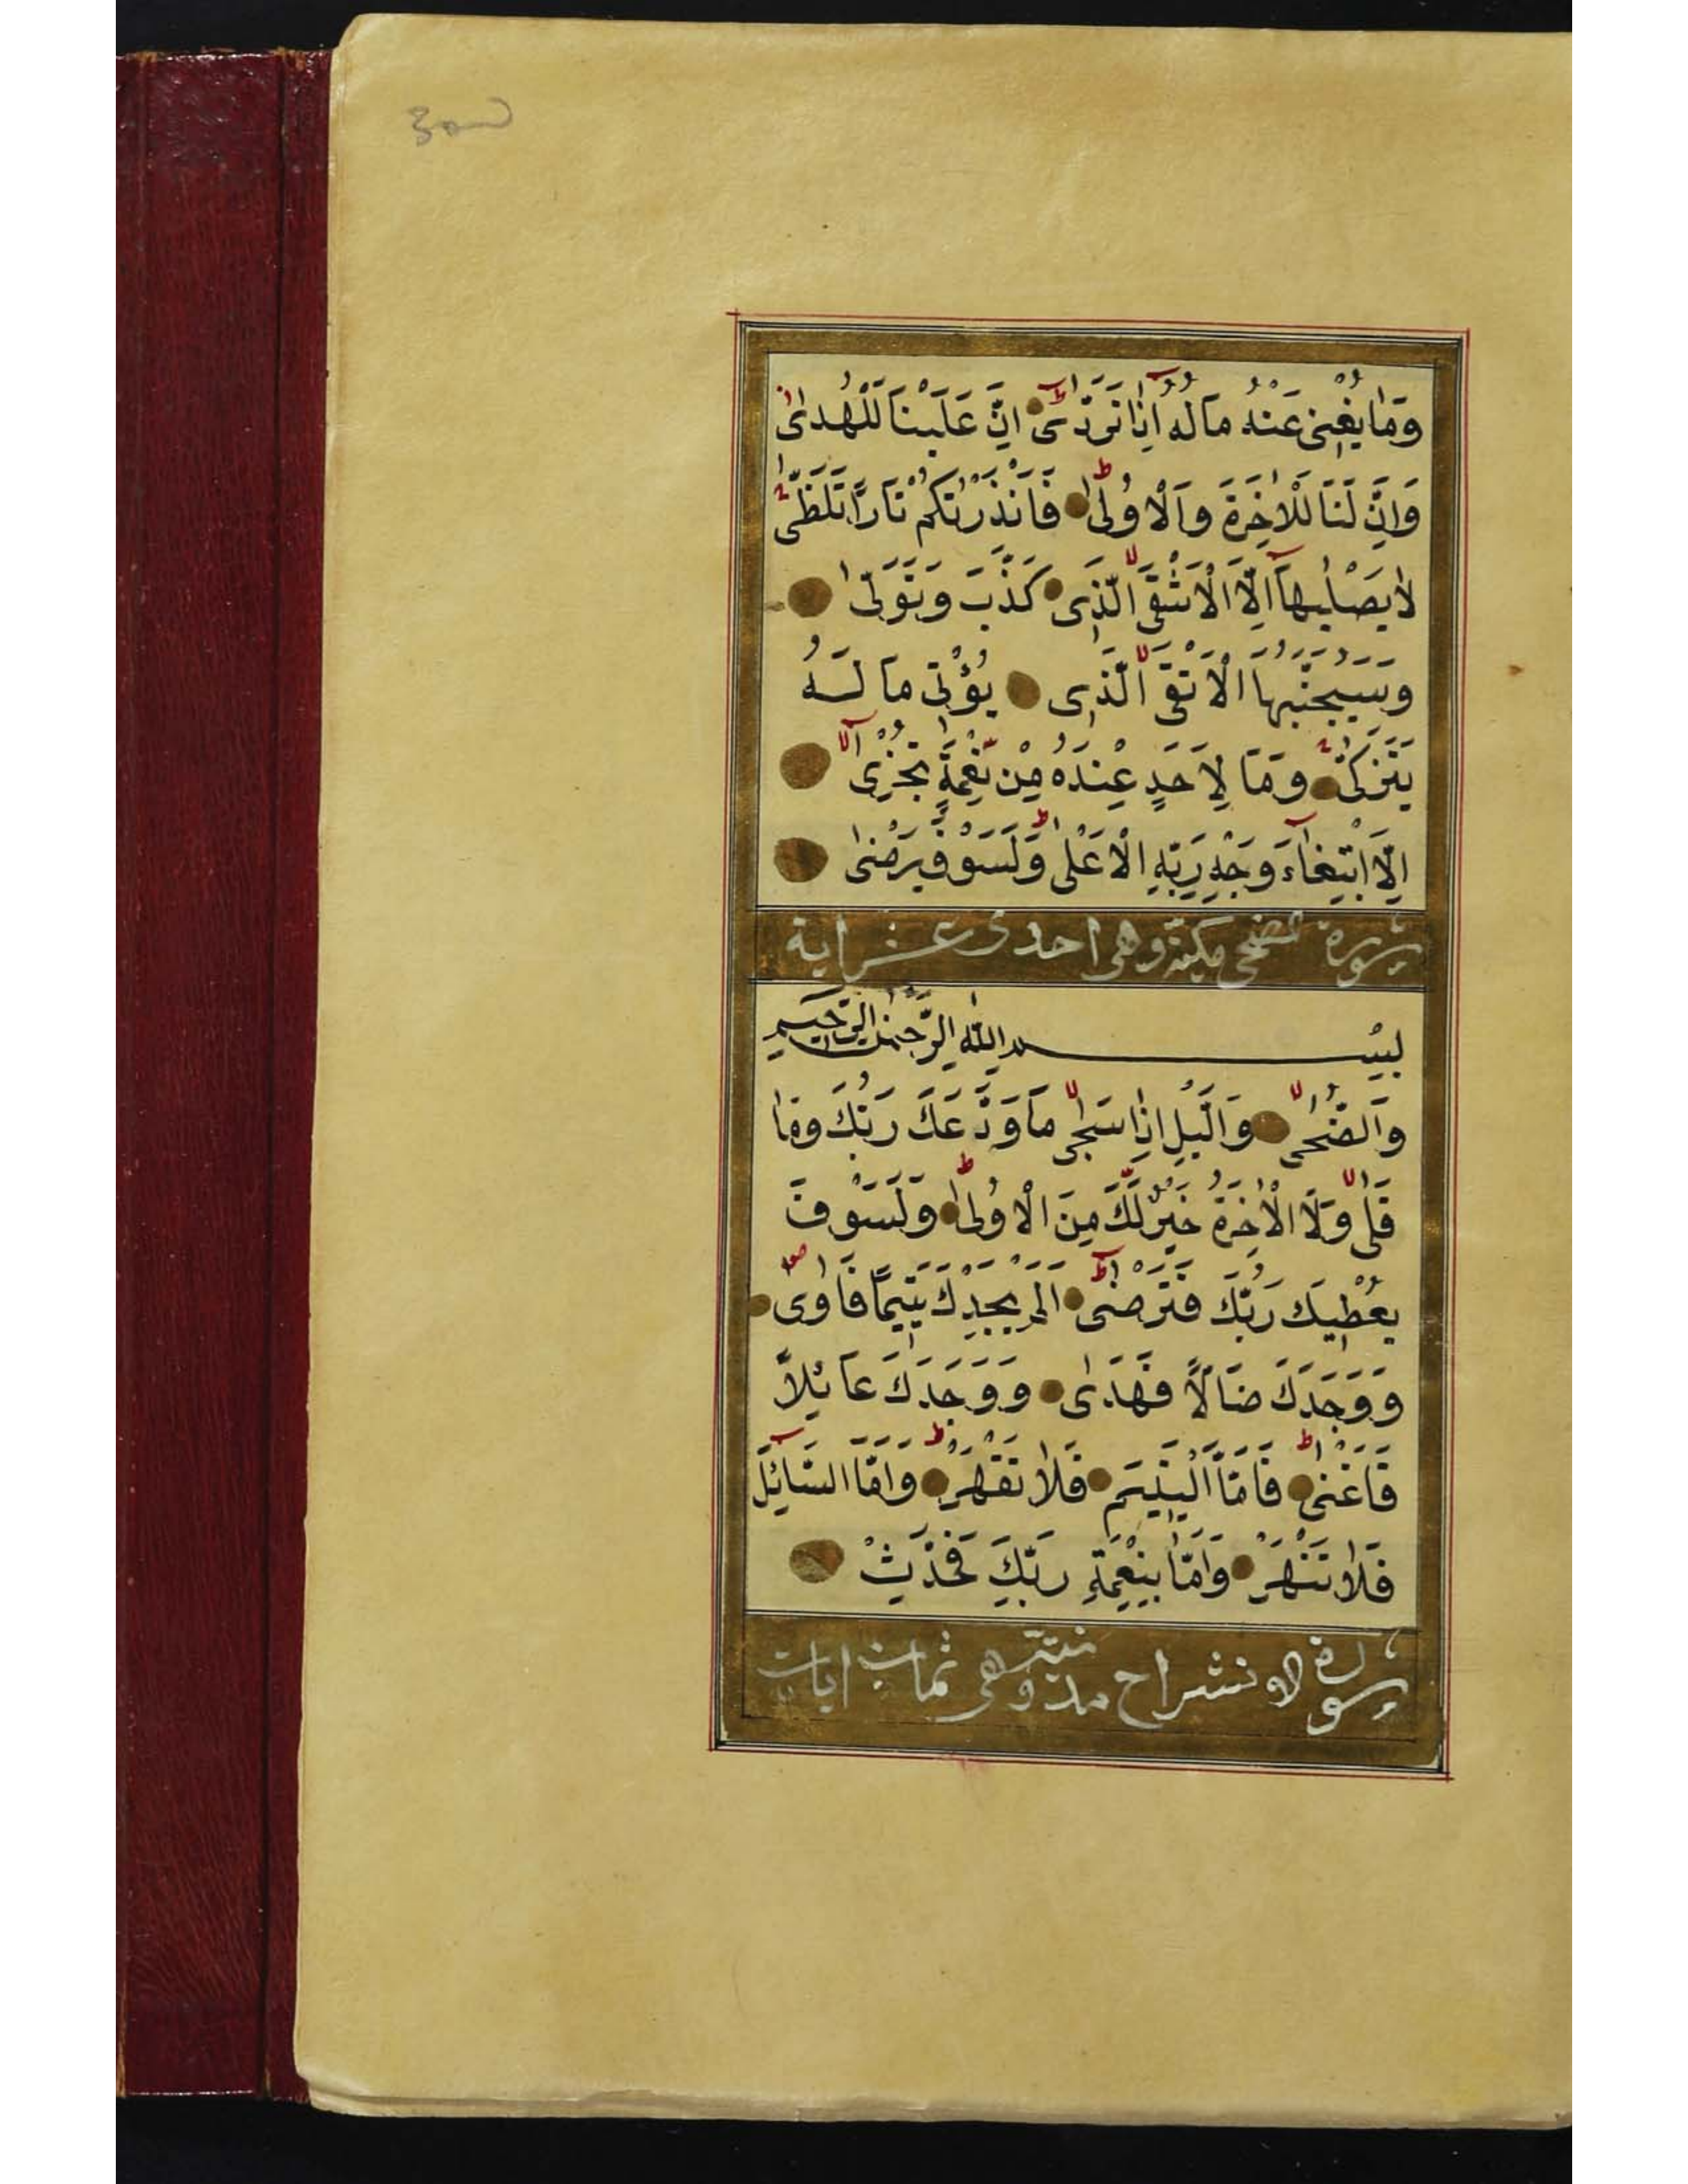 وَمٰا يُغْنى عَنْهُ مٰالُهُ اِذٰا تَرَدّٰى اِنَّ عَلَيْنٰا لَلْهُدىٰ
وَاِنَّ لَنٰا لَلْاٰخِرَةَ وَالْاُولىٰ فَاَنْذَرْتُكُمْ نٰارًا تَلَظّٰى
لٰا يَصْلٰيهٰا اِلَّا الْاَشْقَى الَّذى كَذَّبَ وَتَوَلّىٰ
وَسَيُجَنَّبُهَا الْاَتْقَى الَّذى يُؤْتى مٰا لَهُ
يَتَزَكّٰى وَمٰا لِاَحَدٍ عِنْدَهُ مِنْ نِعْمَةٍ تُجْزٰى
اِلَّا ابْتِغٰاءَ وَجْهِ رَبِّهِ الْاَعْلىٰ وَلَسَوْفَ يَرْضىٰ
سورة الضحى مكية وهى احدى عشر اية
بِسْمِ اللّٰهِ الرَّحْمٰنِ الرَّحيمِ
وَالضُّحىٰ وَالَّيْلِ اِذٰا سَجىٰ مٰا وَدَّعَكَ رَبُّكَ وَمٰا
قَلىٰ وَلَلْاٰخِرَةُ خَيْرٌ لَكَ مِنَ الْاُولىٰ وَلَسَوْفَ
يُعْطيكَ رَبُّكَ فَتَرْضىٰ اَلَمْ يَجِدْكَ يَتيمًا فَاٰوىٰ
وَوَجَدَكَ ضٰالًّا فَهَدىٰ وَوَجَدَكَ عٰائِلًا
فَاَغْنىٰ فَاَمَّا الْيَتيمَ فَلٰا تَقْهَرْ وَاَمَّا السّٰائِلَ
فَلٰا تَنْهَرْ وَاَمّٰا بِنِعْمَةِ رَبِّكَ فَحَدِّثْ
سورة الانشراح مدنية وهى ثمان ايات